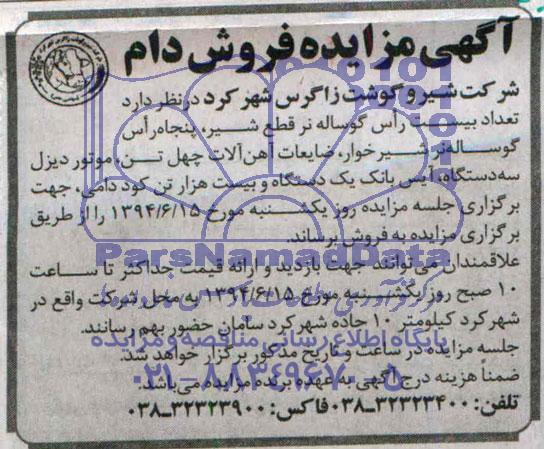 آگهی مزایده فروش دام
شرکت شیر و گوشت زاگرس شهر کرد در نظر دارد
تعداد بیست رأس گوساله نر قطع شیر، پنجاه رأس
گوساله نر شیر خوار، ضایعات آهن آلات چهل تن، موتور دیزل
سه دستگاه، آیس بانک یک دستگاه و بیست هزار تن کود دامی، جهت
برگزاری جلسه مزایده روز یکشنبه مورخ ۱۳۹۴/۶/۱۵ را از طریق
برگزاری مزایده به فروش برساند.
علاقمندان می‌توانند جهت بازدید و ارائه قیمت حداکثر تا ساعت
۱۰ صبح روز یکشنبه مورخ ۱۳۹۴/۶/۱۵ به محل شرکت واقع در
شهر کرد کیلومتر ۱۰ جاده شهر کرد سامان حضور بهم رسانند.
جلسه مزایده در ساعت و تاریخ مذکور برگزار خواهد شد.
ضمناً هزینه درج آگهی به عهده برنده مزایده می‌باشد.
تلفن: ۳۲۳۲۳۴۰۰-۰۳۸ فاکس: ۳۲۳۲۳۹۰۰-۰۳۸
ParsNamadData
پایگاه اطلاع رسانی مناقصه و مزایده
۰۲۱-۸۸۳۴۹۶۷۰